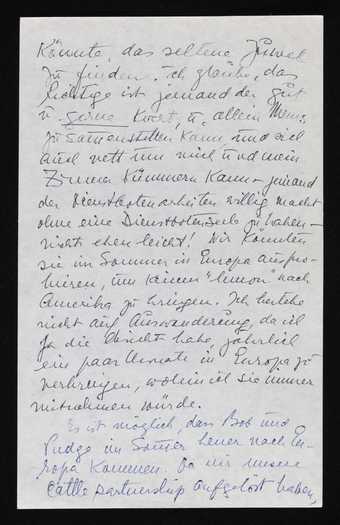 könnte, das seltene Juwel
zu finden. Ich glaube, das
Richtige ist jemand der gut
u. gerne kocht, u. allein Menus
zusammenstellen kann und sich
auch nett um mich und mein
Zimmer kümmern kann – jemand
der Dienstbotenarbeiten willig macht
ohne eine Dienstbotenseele zu haben –
nichts eben leicht! Wir könnten
sie im Sommer in Europa auspro-
bieren, um keinen "lemon" nach
Amerika zu bringen. Ich bestehe
nicht auf Auswanderung, da ich
ja die Absicht habe, jährlich
ein paar Monate in Europa zu
verbringen, wohin ich sie immer
mitnehmen würde.
Es ist möglich, dass Bob und
Pudge im Sommer heuer nach Eu-
ropa kommen. Da wir unsere
cattle partnership aufgelöst haben,